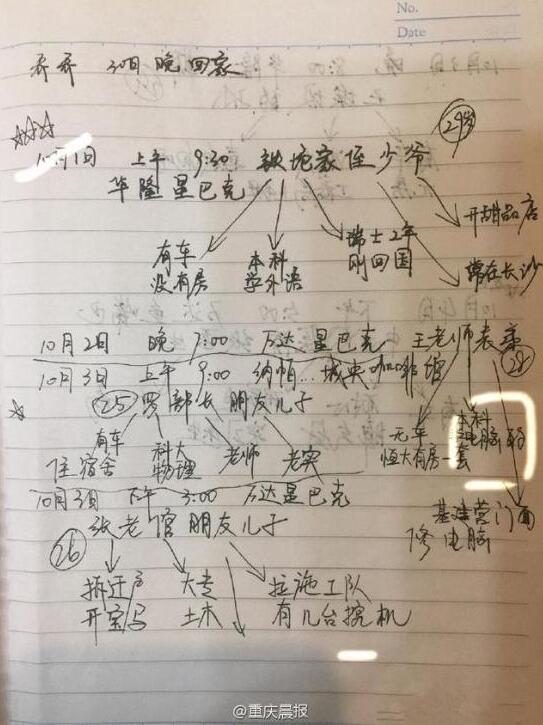 No.
Date
乔乔 30日晚回家
10月1日 上午 9:30 铁坨家侄少爷 29岁
华隆星巴克
开甜品店
瑞士2年
刚回国
有车
没有房
本科
学外语
常在长沙
10月2日 晚 7:00 万达星巴克 王老师表弟 28
10月3日 上午 9:00 纳帕...城央咖啡馆
25 罗部长朋友儿子
有车
住宿舍
科大
物理
老师
老实
无车
恒大有房一套
本科
电脑
10月3日 下午 3:00 万达星巴克
张老倌朋友儿子
26
基建营门面
修电脑
拆迁户
开宝马
大专
土木
拉施工队
有几台挖机
@重庆晨报